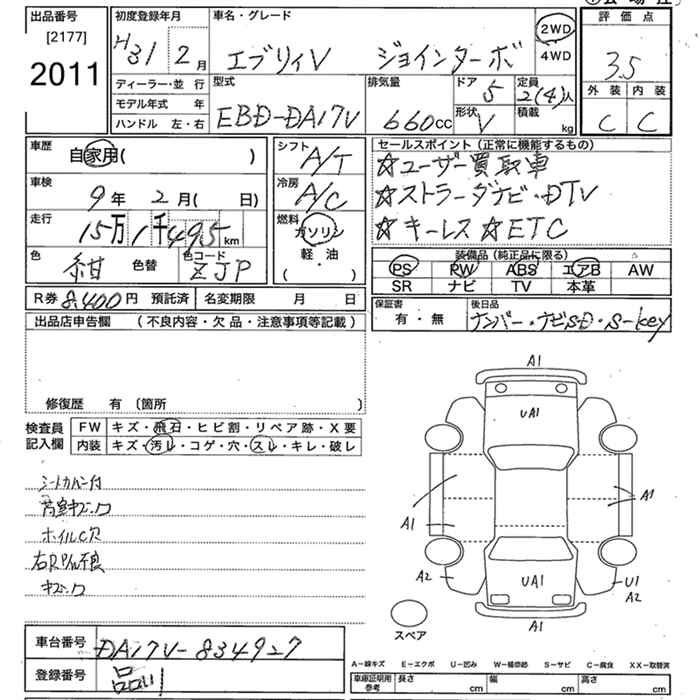 出品番号 初度登録年月 車名・グレード 評価点
[2177] 2011
H31 2月
エブリィV ジョインターボ
2WD
4WD
3.5
外装 内装
C C
ディーラー・並行
モデル年式 年
ハンドル 左・右
型式 EBD-DA17V
排気量 660cc
ドア 5
形状 V
定員 2(4)人
積載 kg
車歴 自家用( )
車検 9年 2月( 日)
走行 15万1千495km
色 紺 色替 色コード ZJP
シフト A/T
冷房 A/C
燃料 ガソリン
軽・油
( )
セールスポイント(正常に機能するもの)
☆ユーザー買取車
☆ストラーダナビ・DTV
☆キーレス ☆ETC
装備品(純正品に限る)
PS PW ABS エアB AW
SR ナビ TV 本革
R券 8,400円 預託済 名変期限 月 日
保証書 有・無
後日品 ナンバー・ナビSD・S-key
出品店申告欄 (不良内容・欠品・注意事項等記載)
修復歴 有 (箇所 )
検査員記入欄
FW キズ・飛石・ヒビ割・リペア跡・X要
内装 キズ・汚レ・コゲ・穴・スレ・キレ・破レ
シートカバー付
ホイルC欠
A1
UA1
A1 A1
A2 U1
A2
UA1
A1
スペア
車台番号 DA17V-834927
登録番号 品川
A-線キズ E-エクボ U-凹み W-補修跡 S-サビ C-腐食 XX-取替済
車庫証明用参考 長さ cm 幅 cm 高さ cm